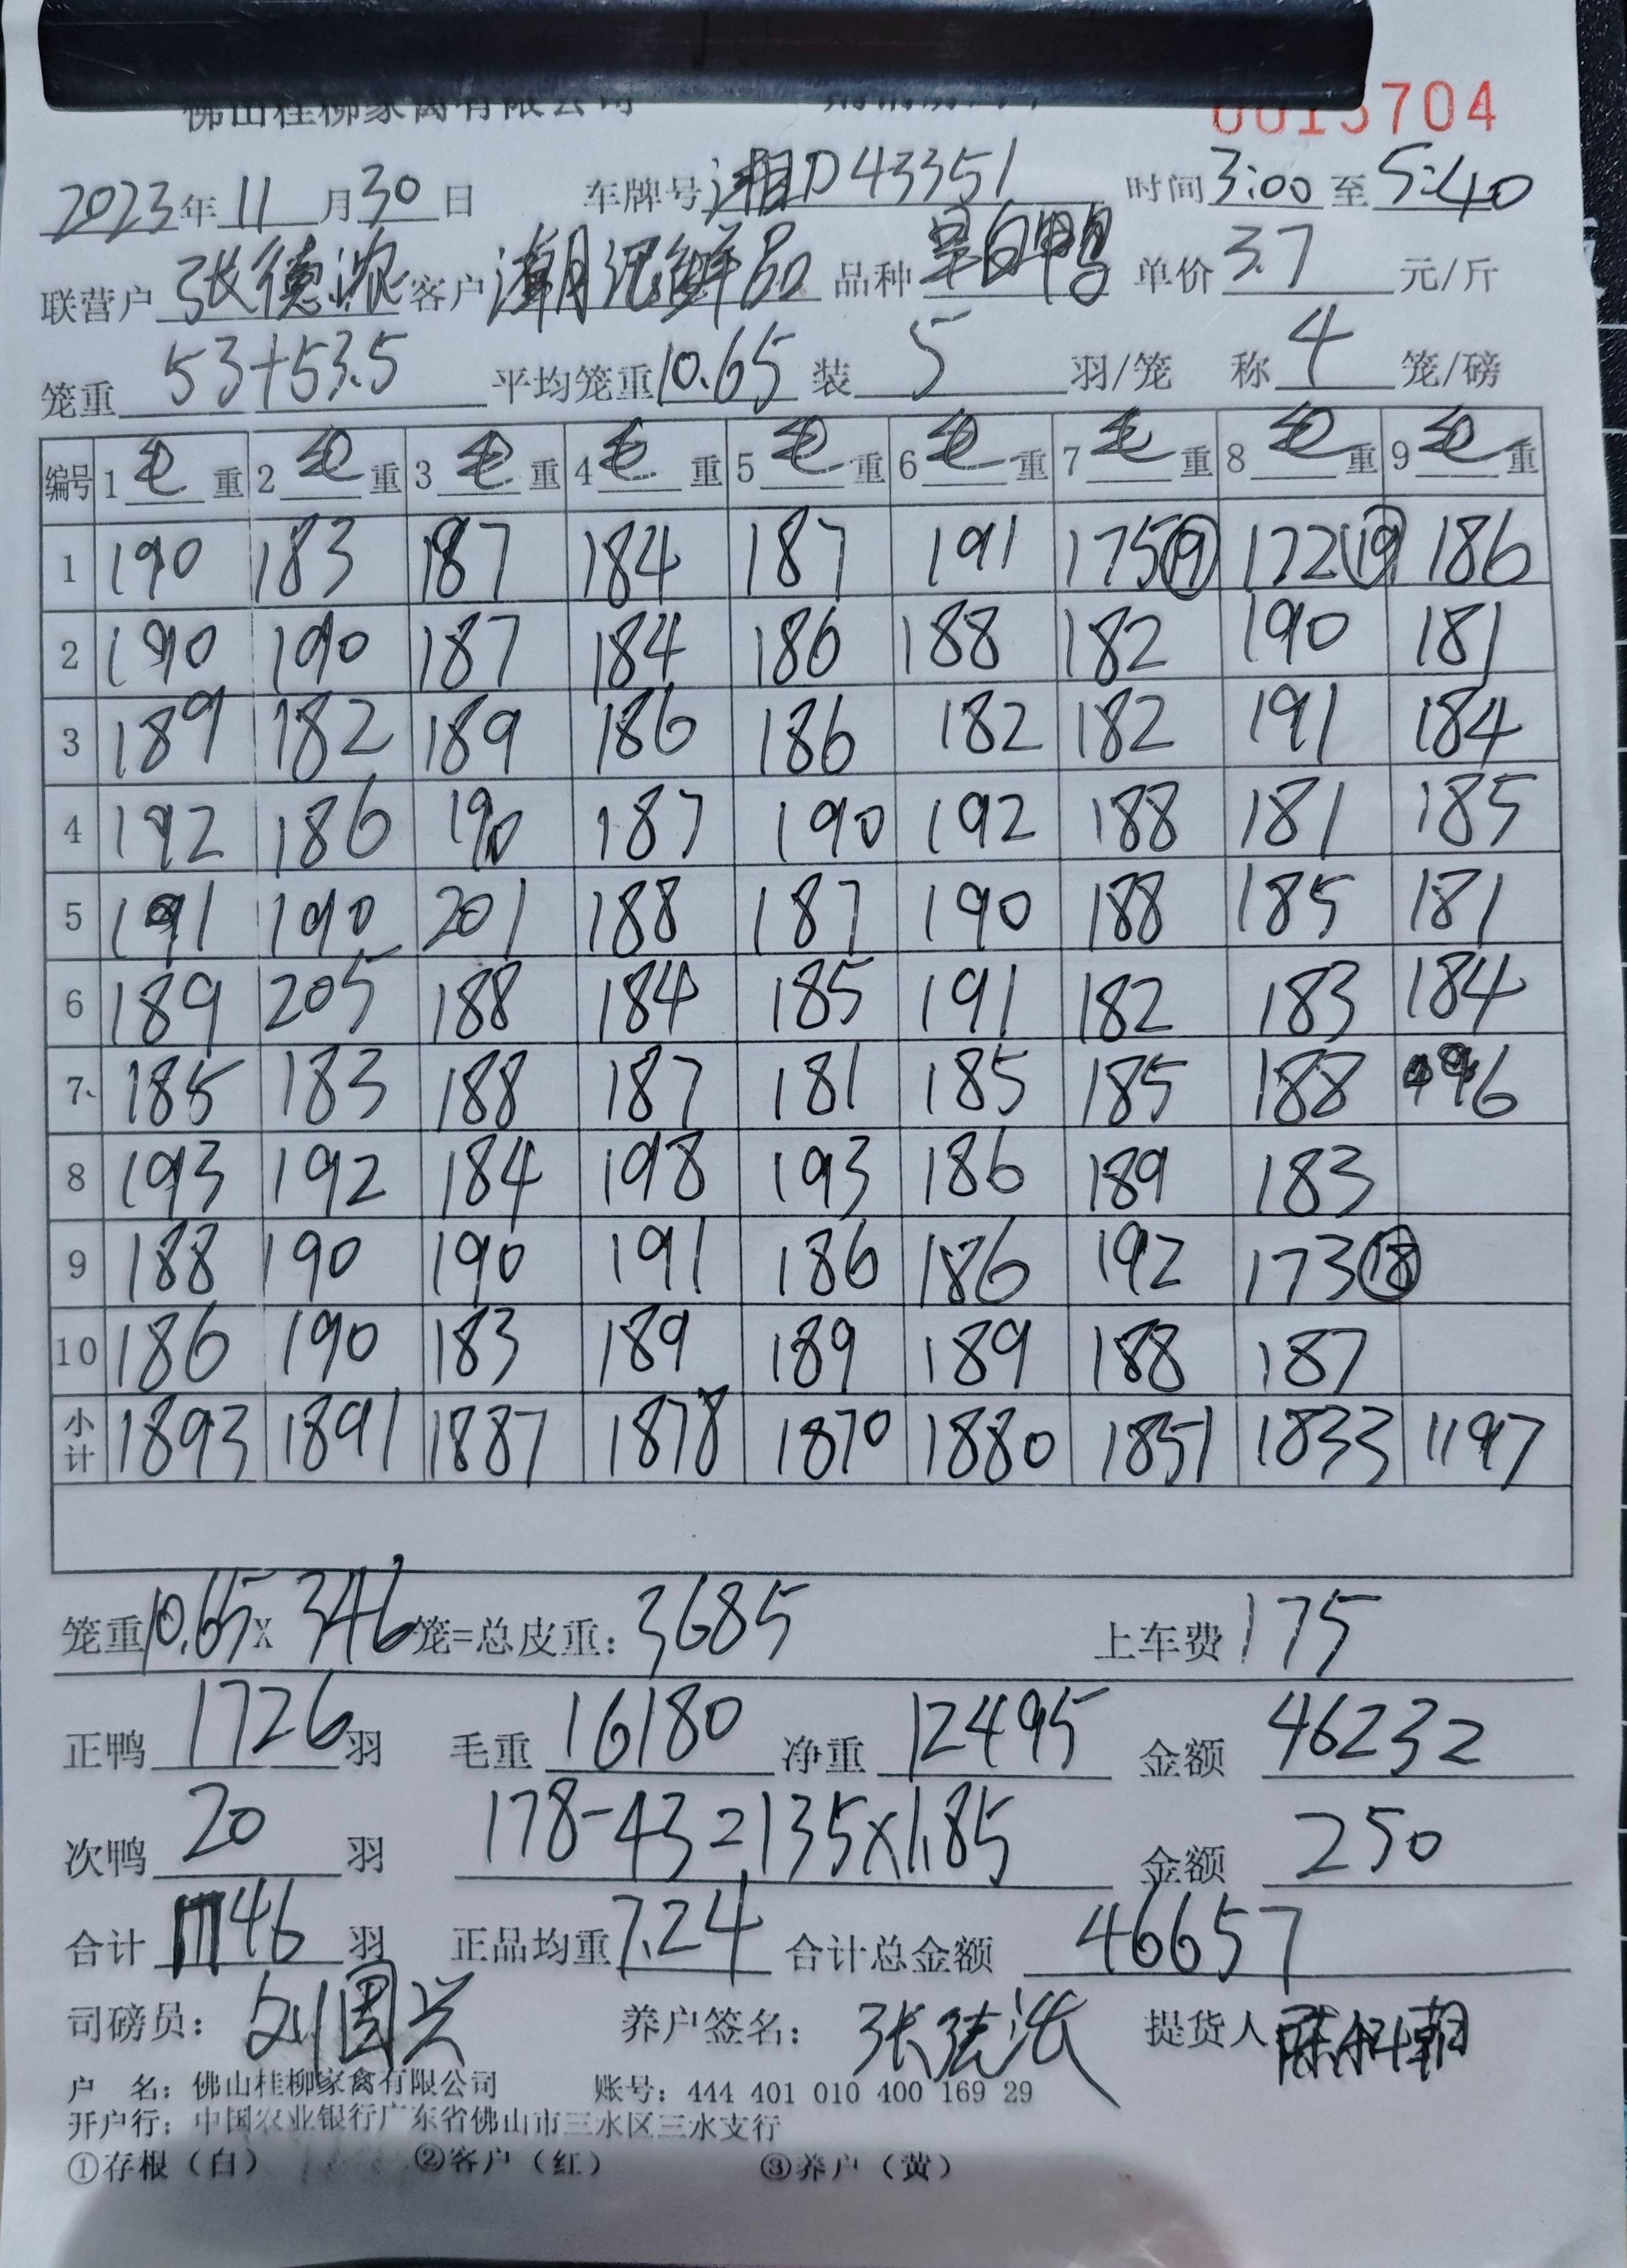 佛山桂柳家禽有限公司 0015704
2023年11月30日 车牌号湘D43351 时间3:00至5:40
联营户张德浓客户潮记鲜品 品种 白鸭 单价3.7元/斤
笼重53+53.5 平均笼重10.65装5羽/笼 称4笼/磅
编号 1毛重 2毛重 3毛重 4毛重 5毛重 6毛重 7毛重 8毛重 9毛重
1 190 183 187 184 187 191 175⑲ 172⑲ 186
2 190 190 187 184 186 188 182 190 181
3 189 182 189 186 186 182 182 191 184
4 192 186 190 187 190 192 188 181 185
5 191 190 201 188 187 190 188 185 181
6 189 205 188 184 185 191 182 183 184
7 185 183 188 187 181 185 185 188 96
8 193 192 184 198 193 186 189 183
9 188 190 190 191 186 186 192 173⑱
10 186 190 183 189 189 189 188 187
小计 1893 1891 1887 1878 1870 1880 1851 1833 1197
笼重10.65x346笼=总皮重:3685 上车费175
正鸭1726羽 毛重16180 净重12495 金额46232
次鸭20羽 178-43=135x1.85 金额250
合计1746羽 正品均重7.24 合计总金额46657
司磅员:刘国兴 养户签名:张德浓 提货人
户 名:佛山桂柳家禽有限公司 账号:444 401 010 400 169 29
开户行:中国农业银行广东省佛山市三水区三水支行
①存根(白) ②客户(红) ③养户(黄)